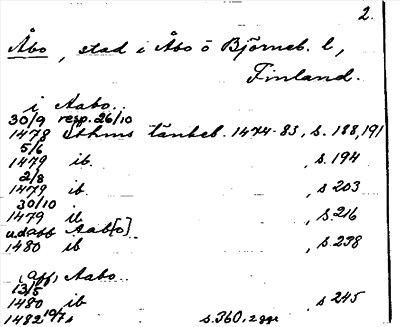 2.
Åbo, stad i Åbo ö Björneb. l,
Finland.
i Aabo.
30/9 resp. 26/10
1478 sthms tänkeb. 1474-83, s. 188, 191
5/6
1479 ib. , s. 194
2/8
1479 ib. , s 203
30/10
1479 ib , s. 216
udabb Aab[o]
1480 ib , s. 238
(aff) Aabo
13/5
1480 ib , s 245
1482 10/7 s. 360, 2 ggr